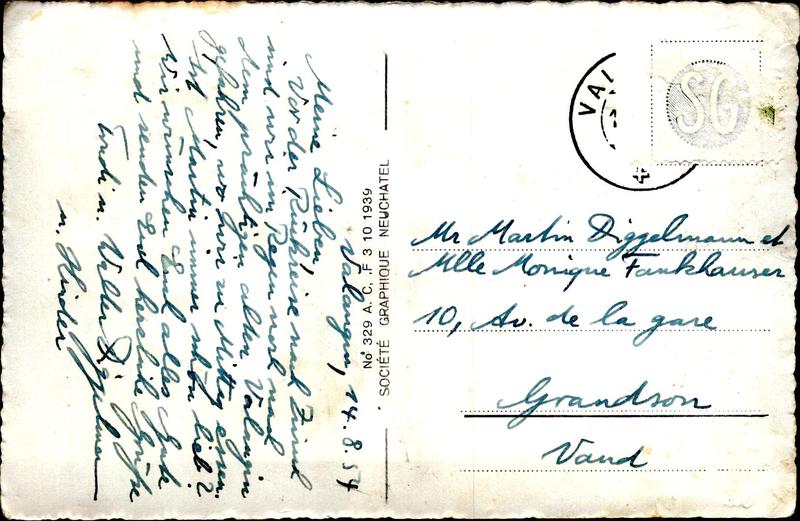 Valangin, 14.8.54
Meine Lieben,
Vor der Rückreise nach Zürich
sind wir im Regen noch nach
dem prächtigen alten Valangin
gefahren, wo wir zu Mittag essen.
Ist Martin immer schön lieb?
Wir wünschen Euch alles Gute
und senden Euch herzliche Grüsse
u. Walter Diggelmann
u. Kinder
No 329 A. C. F 3 10 1939
SOCIÉTÉ GRAPHIQUE NEUCHATEL
VAL
4
SG
Mr Martin Diggelmann et
Mlle Monique Fankhauser
10, Av. de la gare
Grandson
Vaud